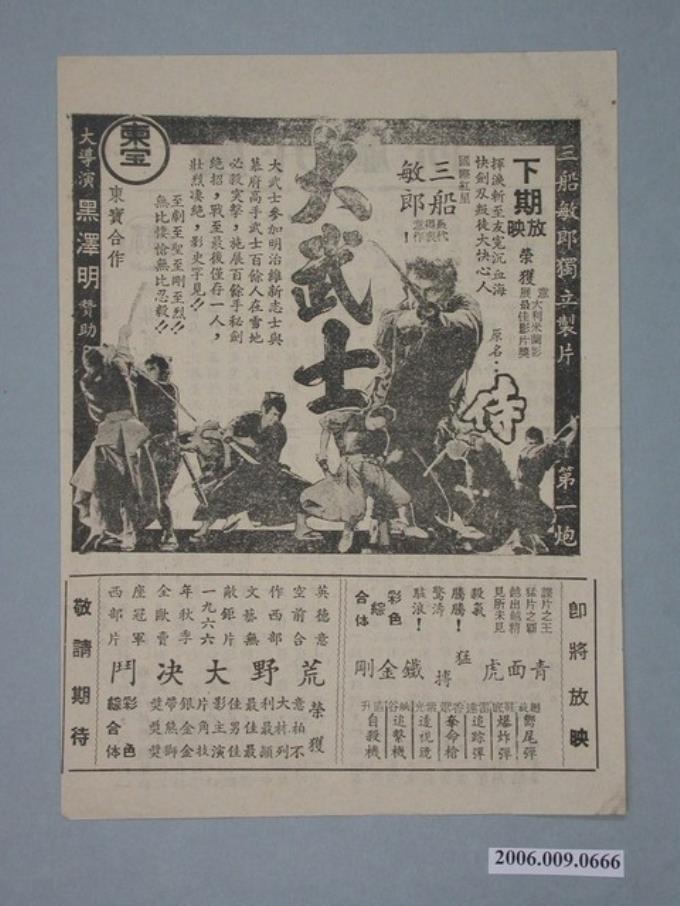 三船敏郎獨立製片 第一炮
下期放映
榮獲意大利米蘭影展最佳影片獎
原名：侍
揮淚斬至友寃沉血海
快劍刄叛徒大快心人
國際紅星
三船敏郎！
大武士
大武士參加明治維新志士與
幕府高手武士百餘人在雪地
必殺突擊，施展百餘手秘劍
絕招，戰至最後僅存一人，
壯烈凄絕，影史罕見！！
至劇至聖至剛至烈！！
無比悽愴無比忍毅！！
東宝
東寶合作
大導演黑澤明贊助
即將放映
諜片之王
猛片之霸
越出越精
見所未見
殺氣騰騰！
驚濤駭浪！
彩色綜合体
青面虎猛搏鐵金剛
響尾彈
爆炸彈
追踪彈
奪命槍
透視鏡
追擊機
自殺機
英德意
空前合
作西部
文藝無
敵鉅片
一九六六
年秋季
全歐賣
座冠軍
西部片
荒野大決鬥
榮獲
意柏不
大林列
利最顏
最佳最
佳男佳
影主演
片角技
銀金金
帶熊獅
獎獎獎
彩色綜合体
敬請期待
2006.009.0666